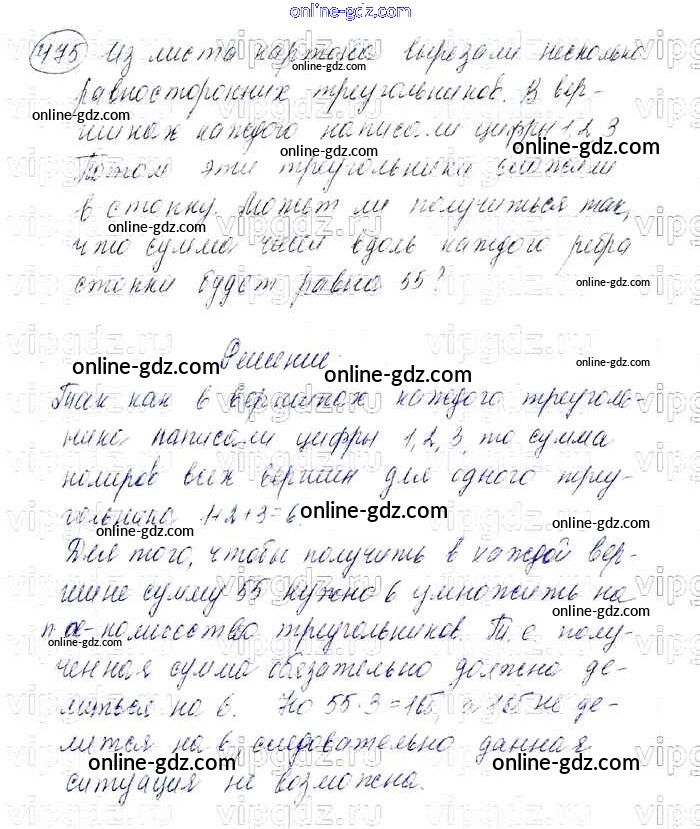 online-gdz.com
475 Из листа картона вырезали несколько
равносторонних треугольников. В вер-
шинах каждого написали цифры 1, 2, 3
online-gdz.com online-gdz.com online-gdz.com
Потом эти треугольники сложили
в стопку. Может ли получиться так,
online-gdz.com
что сумма чисел вдоль каждого ребра
стопки будет равна 55?
online-gdz.com online-gdz.com online-gdz.com
Решение.
online-gdz.com online-gdz.com online-gdz.com
Так как в вершинах каждого треуголь-
ника написали цифры 1, 2, 3, то сумма
online-gdz.com
номеров всех вершин для одного треу-
гольника 1+2+3=6.
online-gdz.com online-gdz.com
Для того, чтобы получить в каждой вер-
шине сумму 55 нужно 6 умножить на
online-gdz.com
n - количество треугольников. Т. е. полу-
ченная сумма обязательно должна де-
online-gdz.com online-gdz.com
литься на 6. Но 55·3=165, а 165 не де-
лится на 6, следовательно данная
online-gdz.com online-gdz.com
ситуация не возможна.